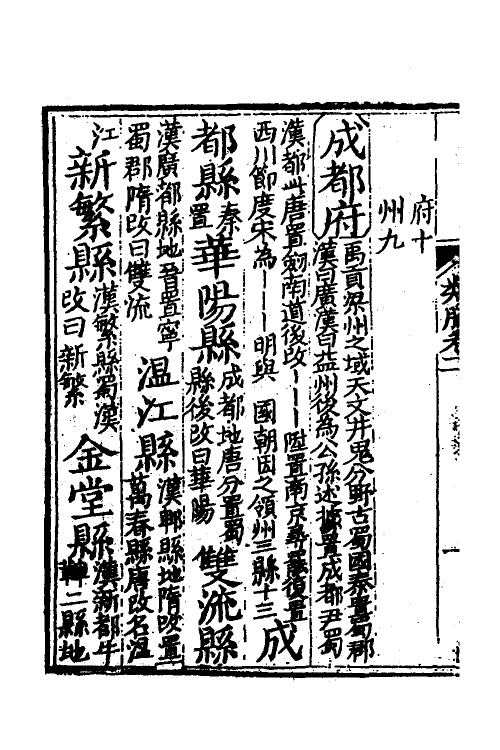 府十
州九
成都府
禹貢梁州之域天文井鬼分野古蜀國秦置蜀郡
漢曰廣漢曰益州後為公孫述據置成都尹蜀
漢都此唐置劔南道後改
陞置南京尋復置
西川節度宋為
明與
國朝因之領州三縣十三
成
都縣
秦置
華陽縣
成都地唐分置蜀
縣後改曰華陽
雙流縣
漢廣都縣地晉置寧
蜀郡隋改曰雙流
温江縣
漢郫縣地隋改置
萬春縣唐改名温
江
新繁縣
漢繁縣蜀漢
改曰新繁
金堂縣
漢新都牛
鞞二縣地